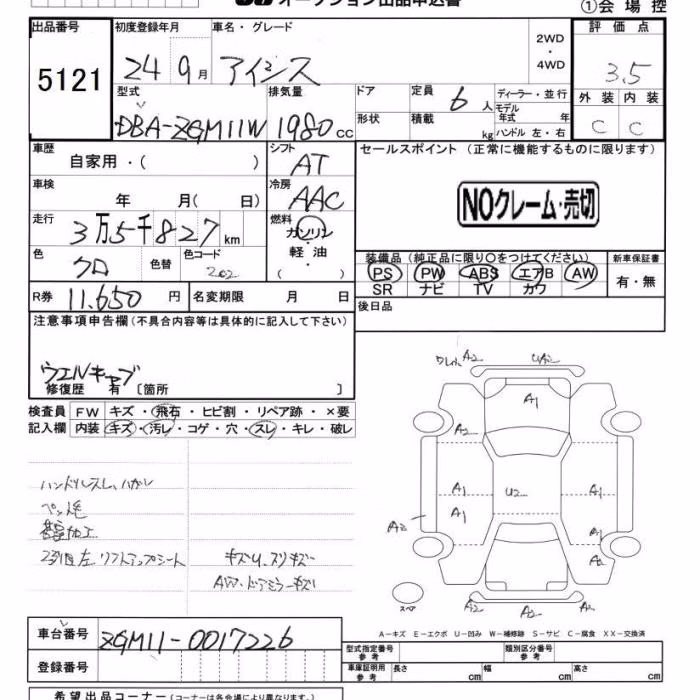 オークション出品申込書
①会場控
出品番号
5121
初度登録年月
24 9月
車名・グレード
アイシス
2WD
・
4WD
評価点
3.5
外装 内装
C C
型式
DBA-ZGM11W
排気量
1980cc
ドア
形状
定員 6人
積載 kg
ディーラー・並行
モデル年式 年
ハンドル 左・右
車歴
自家用・( )
シフト
AT
セールスポイント (正常に機能するものに限ります)
NOクレーム・売切
車検
年 月( 日)
冷房
AAC
走行
3万5千827km
燃料
ガソリン
軽・油
( )
色
クロ
色替
色コード
202
装備品 (純正品に限り〇をつけてください) 新車保証書
PS PW ABS エアB AW
SR ナビ TV カワ
有・無
R券 11.650 円
名変期限 月 日
後日品
注意事項申告欄(不具合内容等は具体的に記入して下さい)
ウエルキャブ
修復歴 有 [箇所 ]
検査員
記入欄
FW キズ・飛石・ヒビ割・リペア跡・×要
内装 キズ・汚レ・コゲ・穴・スレ・キレ・破レ
ハンドルスレ、ハガレ
ペン毛
2列目左 リフトアップシート
キズU、スリキズ
AW・ドアミラーキズ
A2 UA2
A1
A2
A1 U2 A1
A1
A2
A1
A2 A2
A2
スペア
A-キズ E-エクボ U-凹み W-補修跡 S-サビ C-腐食 XX-交換済
車台番号
ZGM11-0017226
登録番号
型式指定番号
参考
類別区分番号
参考
車庫証明用
参考
長さ cm 幅 cm 高さ cm
希望出品コーナー(コーナーは各会場により異なります。)